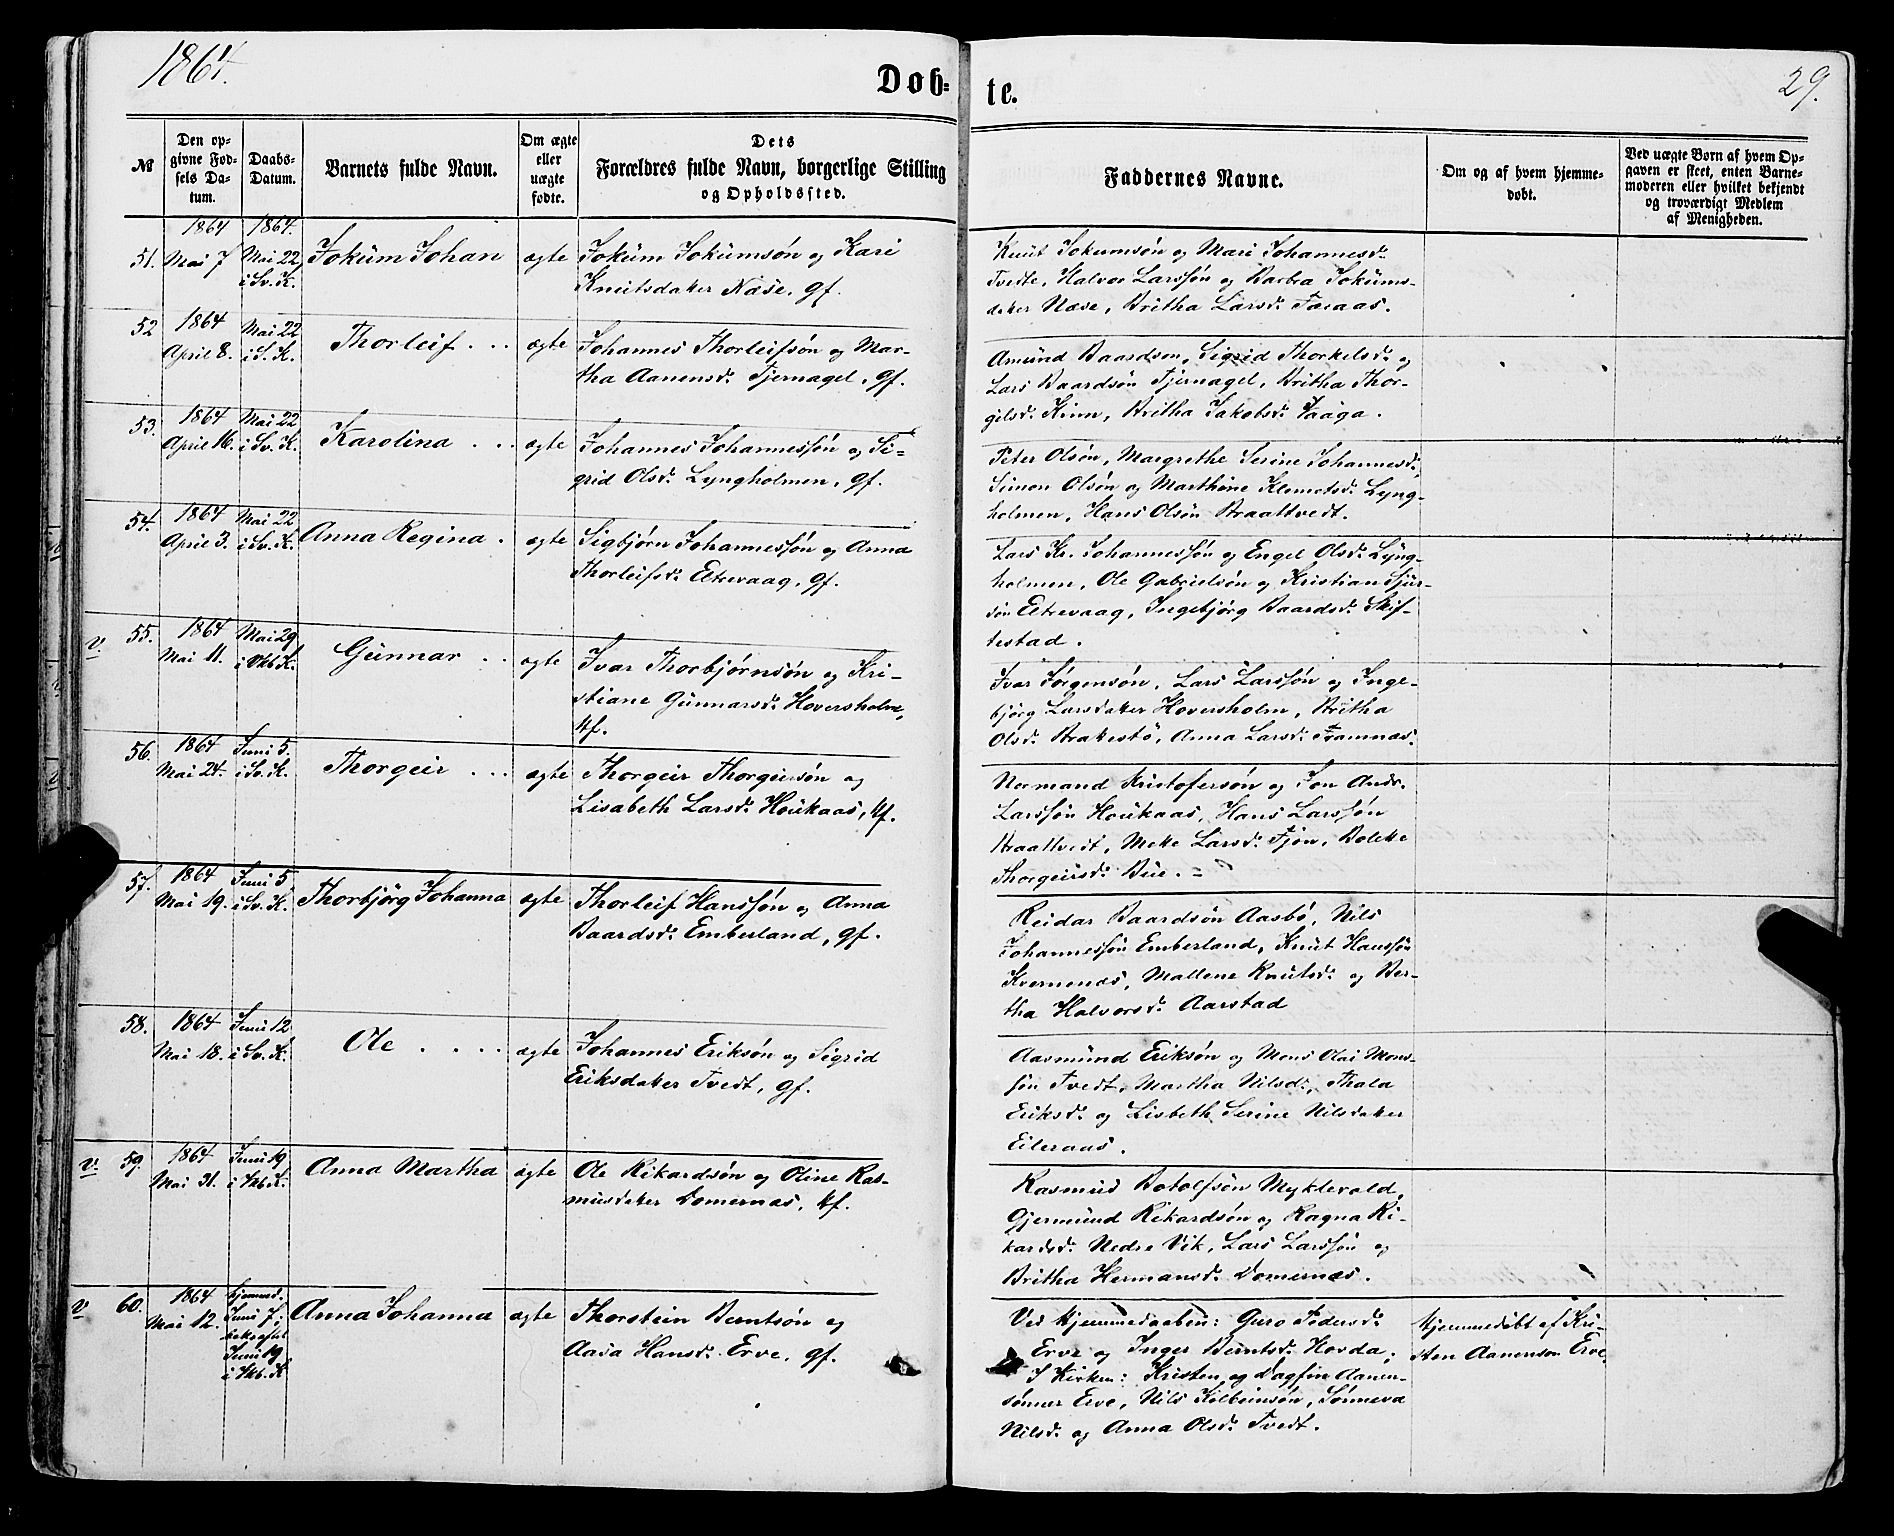 1864.
Dob=
te.
29.
No
Den op-
givne Fød-
sels Da-
tum.
Daabs-
Datum.
Barnets fulde Navn.
Om ægte
eller
uægte
fødte.
Dets
Forældres fulde Navn, borgerlige Stilling
og Opholdssted.
Faddernes Navne.
Om og af hvem hjemme-
døbt.
Ved uægte Børn af hvem Op-
gaven er skeet, enten Barne-
moderen eller hvilket bekjendt
og troværdigt Medlem
af Menigheden.
51.
1864
Mai 7
1864.
Mai 22
i Sv. K.
Jokum Johan
ægte
Jokum Jokumsøn og Kari
Knutsdaker Næse, gf.
Knut Jokumsøn og Mari Johannesd.
Tvedte, Halvor Larssøn og Barbra Jokums-
daker Næse, Britha Larsd.
52
1864
April 8.
Mai 22
i S. K.
Thorleif . . .
ægte
Johannes Thorleifsøn og Mar-
tha Aanensd. Tjernagel, gf.
Amund Baardsøn, Sigrid Thorkelsd. og
Lars Baardsøn Tjernagel, Britha Thor-
gilsd. Kinn, Britha Jakobsd. Vaaga.
53.
1864
April 16.
Mai 22
i Sv. K.
Karolina . . .
ægte
Johannes Johannessøn og Si-
grid Olsd. Lyngholmen, gf.
Peter Olsøn, Margrethe Serine Johannesd.,
Simon Olsøn og Marthine Klemetsd. Lyng-
holmen, Hans Olsøn Braattvedt.
54.
1864
April 3.
Mai 22
i Sv. K.
Anna Regina .
ægte
Sigbjørn Johannessøn og Anna
Thorleifsd. Eltrevaag, gf.
Lars Kr. Johannessøn og Engel Olsd. Lyng-
holmen, Ole Gabrielsøn og Kristian Sjur-
søn Eltrevaag, Ingebjørg Baardsd. Skif-
testad.
v.
55.
1864
Mai 11.
Mai 29
i Mb. K.
Gunnar . .
ægte
Ivar Thorbjørnsøn og Kri-
stiane Gunnarsd. Hoversholm,
kf.
Ivar Jørgensøn, Lars Larssøn og Inge-
bjørg Larsdaker Hoversholm, Britha
Olsd. Brakestø, Anna Larsd. Framnæs.
56.
1864
Mai 24.
Juni 5.
i Sv. K.
Thorgeir . . .
ægte
Thorgeir Thorgeirsøn og
Lisabeth Larsd. Houkaas, kf.
Normand Kristofersøn og Jon Andr.
Larssøn Houkaas, Hans Larssøn
Braattvedt, Meke Larsd. Fjøn, Boleke
Thorgeirsd. Bue.
57.
1864
Mai 19.
Juni 5
i Sv. K.
Thorbjørg Johanna
ægte
Thorleif Hanssøn og Anna
Baardsd. Emberland, gf.
Reidar Baardsøn Aasbø, Nils
Johannessøn Emberland, Knut Hanssøn
Kvernenæs, Mallene Knutsd. og Ber-
tha Halvorsd. Aarstad
58.
1864
Mai 18.
Juni 12
i Sv. K.
Ole . . . .
ægte
Johannes Eriksøn og Sigrid
Eriksdaker Tvedt, gf.
Aasmund Eriksøn og Mons Olai Mons-
søn Tvedt, Martha Nilsd., Thala
Eriksd. og Lisbeth Serine Nilsdaker
Eileraas.
v.
59.
1864
Mai 31.
Juni 19
i Mb. K.
Anna Martha
ægte
Ole Rikardsøn og Oline Ras-
musdaker Domernæs, kf.
Rasmus Botolfsøn Myklevold,
Gjermund Rikardsøn og Ragna Ri-
kardsd. Nedre Vik, Lars Larssøn og
Britha Hermansd. Domernæs.
v
60.
1864
Mai 12.
hjemmed.
Juni 7,
bekræftet
Juni 19
i Mb. K
Anna Johanna
ægte
Thorstein Berntsøn og
Aasa Hansd. Erve, gf.
Ved Hjemmedaaben: Guro Pedersd.
Erve og Inger Berntsd. Hovda;
I Kirken: Kristen og Dagfin Aanen-
sønner Erve, Nils Kolbeinsøn, Sønneva
Nilsd. og Anna Olsd. Tvedt.
Hjemmedøbt af Kri-
sten Aanensøn Erve.